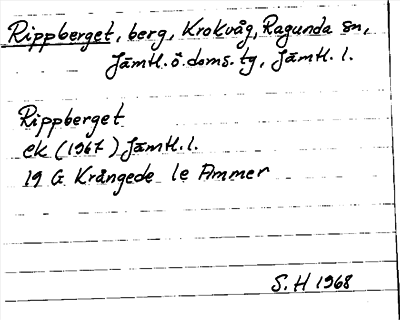 Rippberget, berg, Krokvåg, Ragunda sn,
Jämtl. ö. doms. tg, Jämtl. l.
Rippberget
ek (1967) Jämtl. l.
19 G Krångede 1e Ammer
S. H 1968